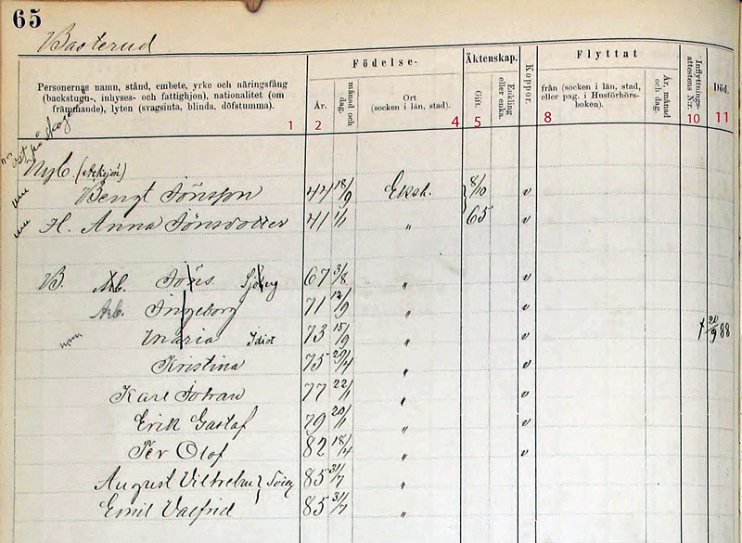 65
Basterud
Personernas namn, stånd, embete, yrke och näringsfång
(backstugu-, inhyses- och fattighjon), nationalitet (om
främmande), lyten (svagsinta, blinda, döfstumma).
1
Födelse-
År.
2
månad och
dag.
Ort
(socken i län, stad).
4
Äktenskap.
Gift.
5
Enkling
eller enka.
Koppor.
Flyttat
från (socken i län, stad,
eller pag. i Husförhörs-
boken).
8
År, månad
och dag.
Inflyttnings-
attestens N:r.
10
Död.
11
Nyb.
Bengt Jönsson 44 18/9 Eksh. 8/10 v
H. Anna Jönsdotter 41 1/1 " 65 v
B. Arb. Jöns 67 3/8 " v
Arb. Ingeborg 71 12/9 " v
Maria Idiot 73 15/9 " v † 20/9 88
Kristina 75 29/4 " v
Karl Johan 77 22/1 " v
Erik Gustaf 79 20/1 " v
Per Olof 82 18/4 " v
August Vilhelm 85 31/7 "
Emil Valfrid 85 31/7 "